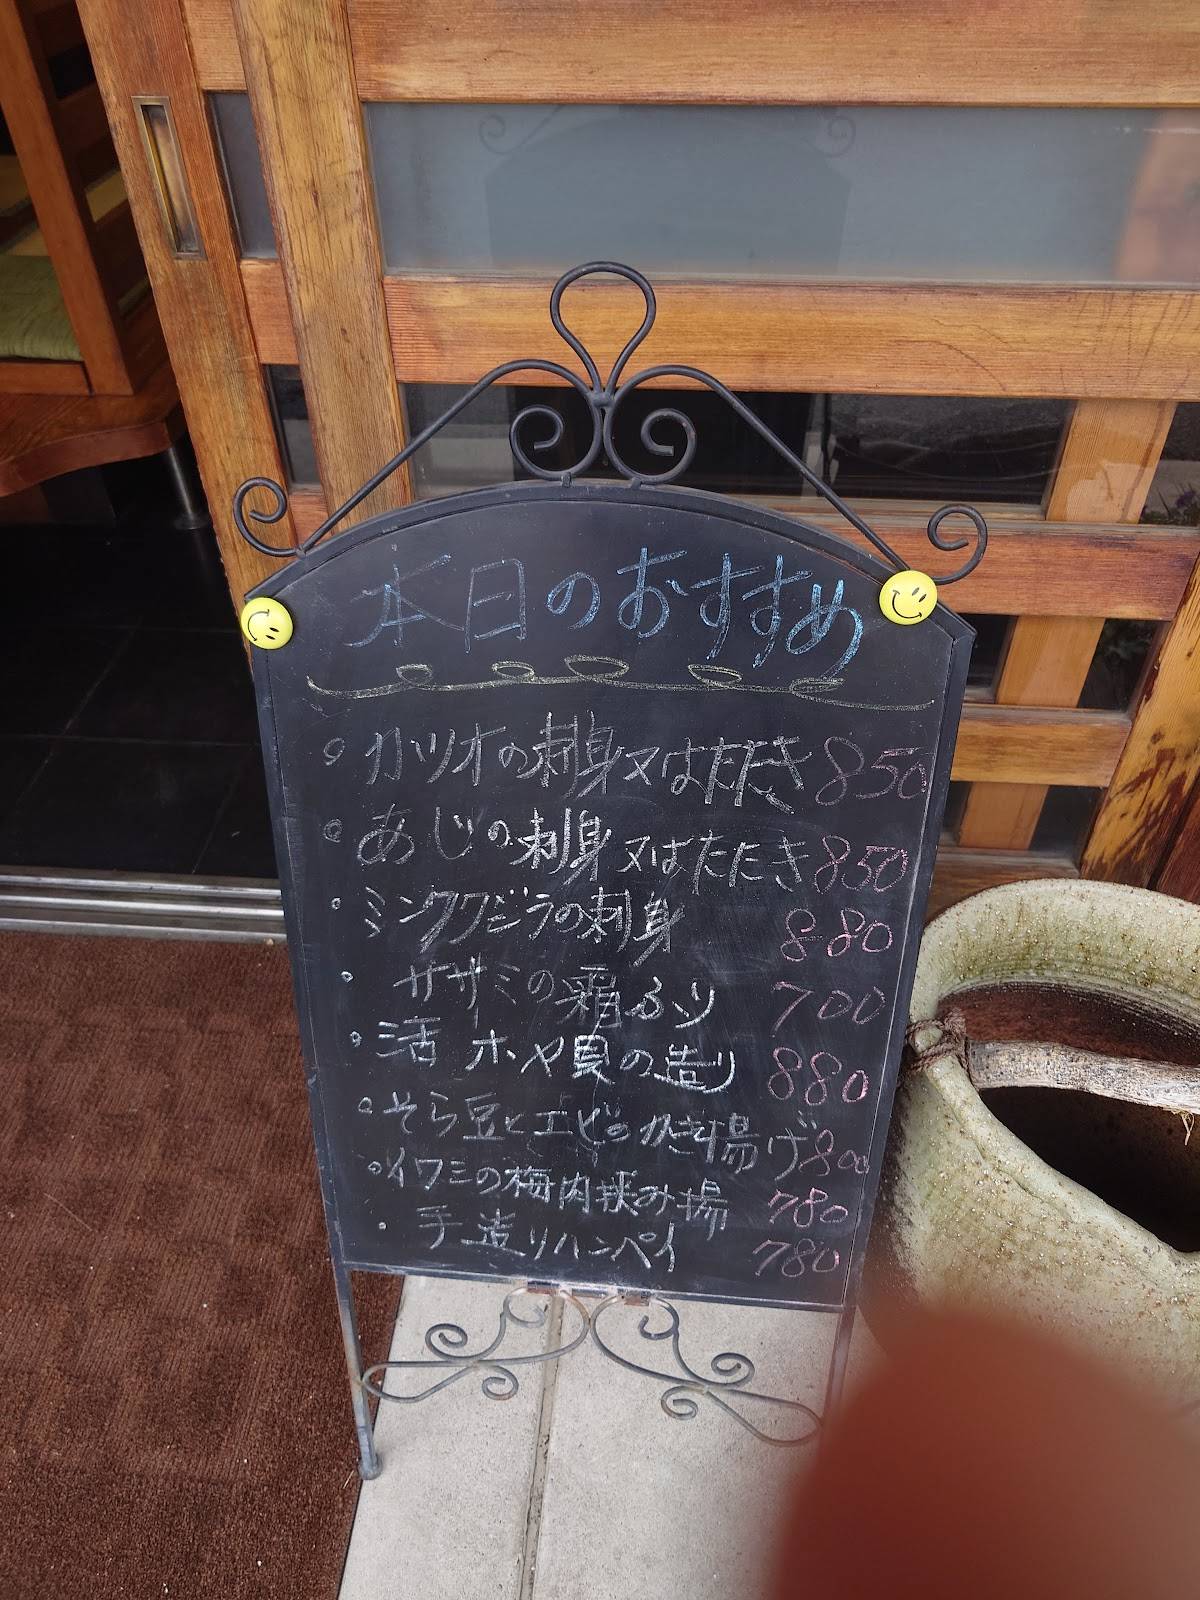 本日のおすすめ
カツオの刺身又はたたき 850
あじの刺身又はたたき 850
ミンククジラの刺身 880
ササミの霜ふり 700
活 ホヤ貝の造り 880
そら豆とエビのかき揚げ 800
イワシの梅肉挟み揚 780
手造りハンペイ 780